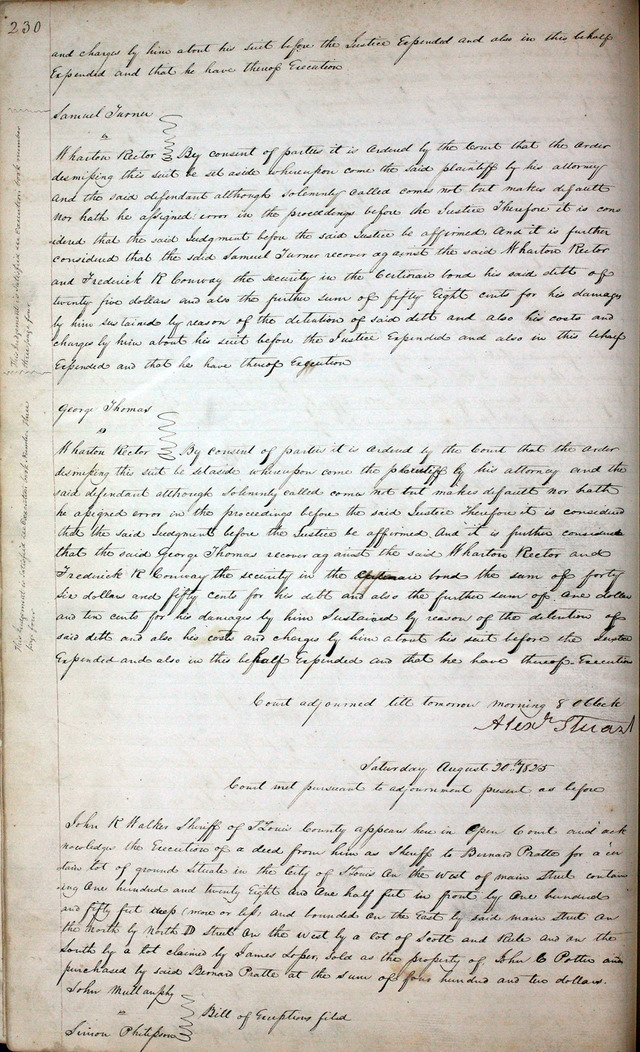 230
and charges by him about his suit before the Justice Expended and also in this behalf
Expended and that he have thereof Execution
Samuel Turner
vs
Wharton Rector By consent of parties it is ordered by the Court that the order
dismissing this suit be set aside whereupon come the said plaintiff by his attorney
and the said defendant although solemnly called comes not but makes default
Nor hath he assigned error in the proceedings before the Justice Therefore it is con
sidered that the said Judgment before the said Justice be affirmed. And it is further
considered that the said Samuel Turner recover against the said Wharton Rector
and Frederick R Conway the security in the Certiorari bond his said debt of
twenty five dollars and also the further sum of fifty Eight cents for his damages
by him sustained by reason of the detention of said debt and also his costs and
charges by him about his suit before the Justice Expended and also in this behalf
Expended and that he have thereof Execution
This judgement is satisfied see execution book number
three page four
George Thomas
vs
Wharton Rector By consent of parties it is ordered by the Court that the order
dismissing this suit be set aside whereupon come the plaintiff by his attorney and the
said defendant although solemnly called comes not but makes default nor hath
he assigned error in the proceedings before the said Justice Therefore it is considered
that the said Judgment before the Justice be affirmed. And it is further considered
that the said George Thomas recover against the said Wharton Rector and
Frederick R Conway the security in the bond the sum of forty
six dollars and fifty cents for his debt and also the further sum of one dollar
and ten cents for his damages by him sustained by reason of the detention of
said debt and also his costs and charges by him about his suit before the Justice
Expended and also in this behalf Expended and that he have thereof Execution
This judgement is satisfied see Execution book Number three
page four
Court adjourned till tomorrow morning 8 OClock
Alexr Stuart
Saturday August 20th 1825
Court met pursuant to adjournment present as before
John K Walker Sheriff of St Louis County appears here in Open Court and ack
nowledges the Execution of a deed from him as Sheriff to Bernard Pratte for a cer
tain lot of ground situate in the City of St Louis on the west of main Street contain
ing One hundred and twenty Eight and one half feet in front by One hundred
and fifty feet deep (more or less) and bounded on the East by said main Street on
the North by North D Street on the west by a lot of Scott and Rule and on the
South by a lot claimed by James Loper, sold as the property of John C Potter and
purchased by said Bernard Pratte at the sum of four hundred and two dollars.
John Mullanphy
vs Bill of Exceptions filed
Simon Philipson